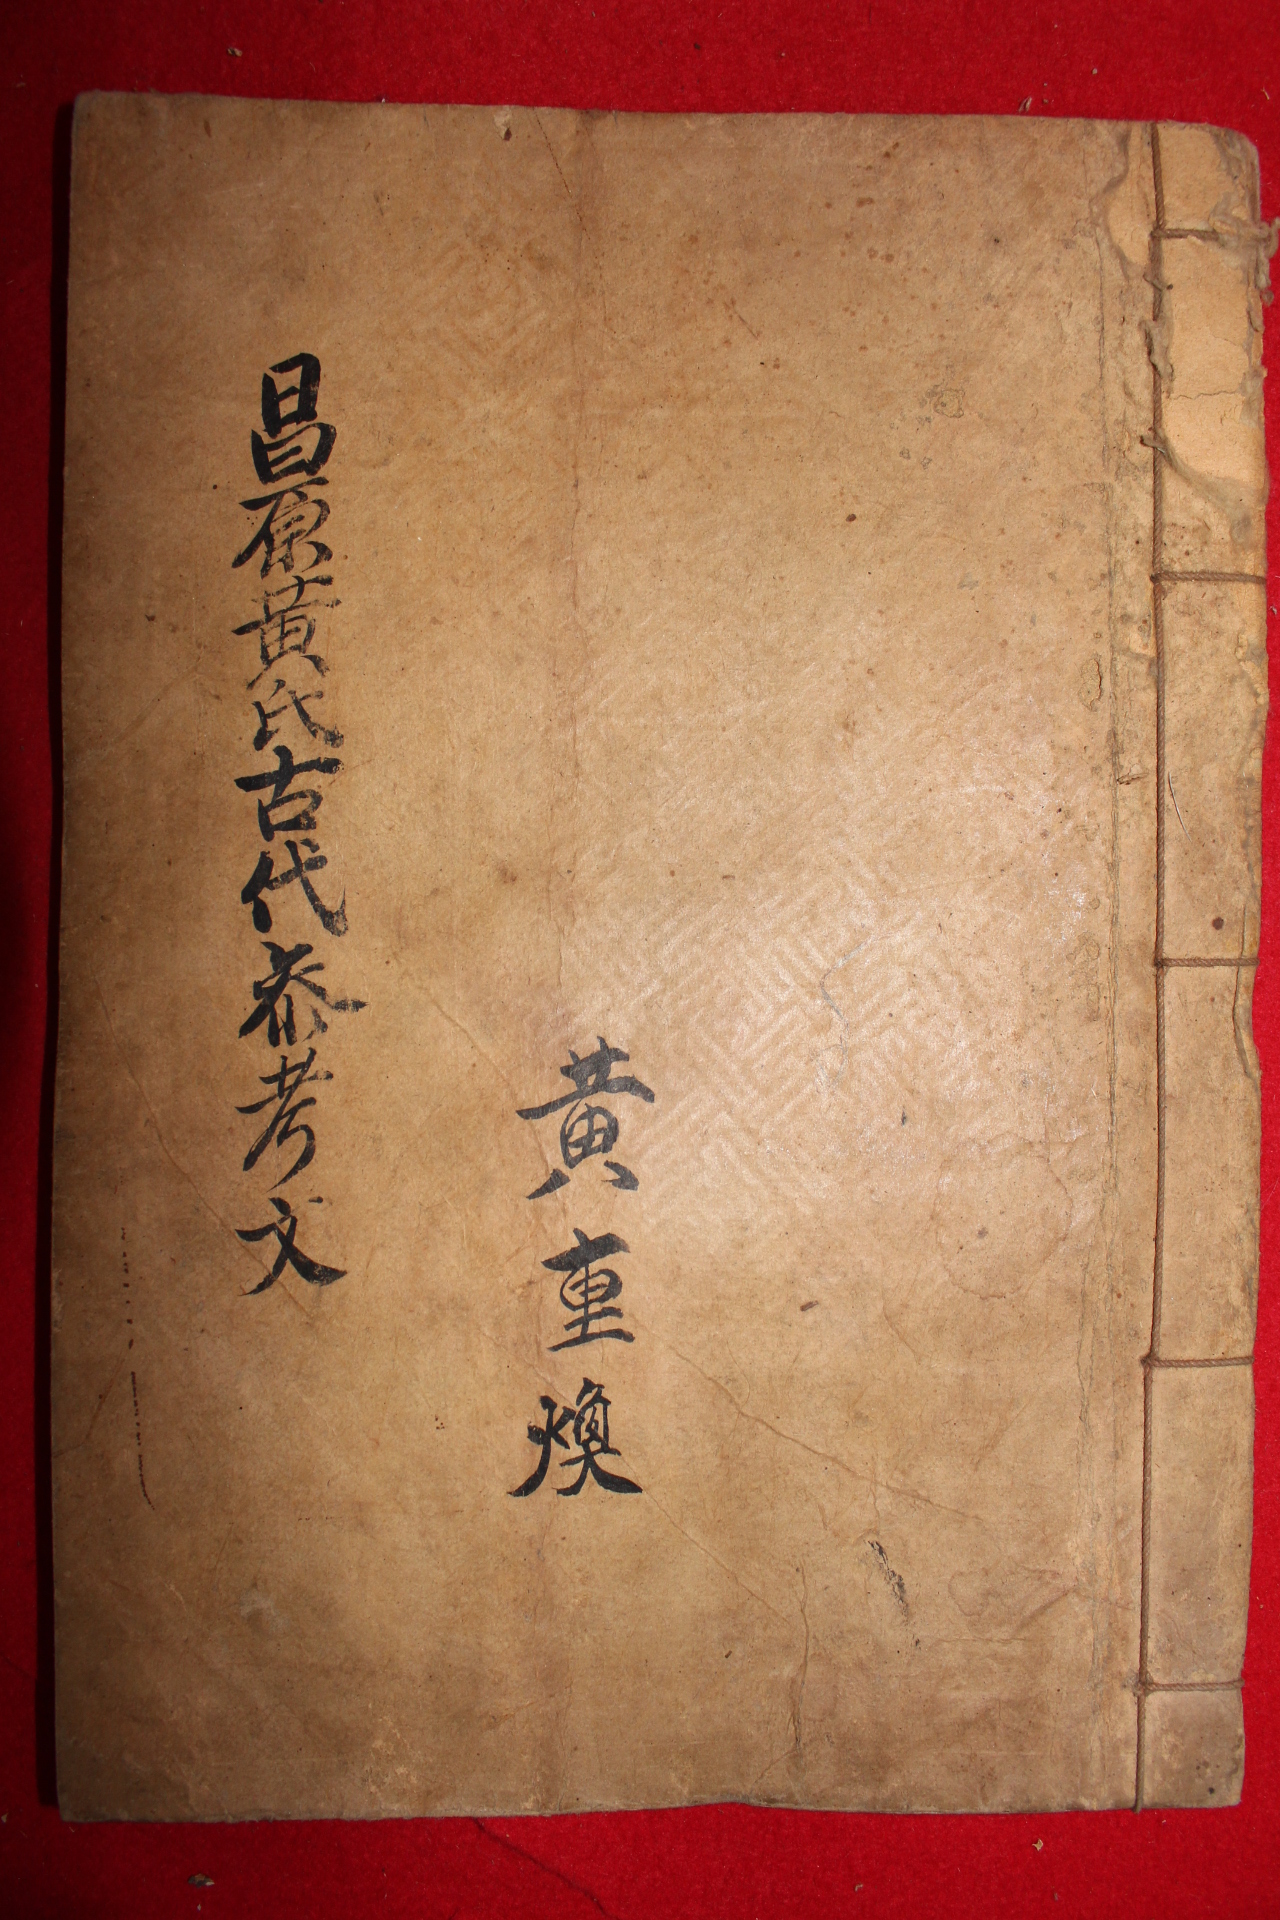 黄重煥
昌原黄氏古代叅考文